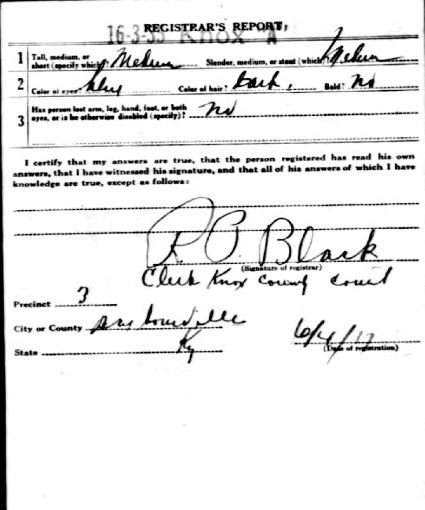 REGISTRAR'S REPORT
16-3-33 KNOX A
1 Tall, medium, or short (specify which)? Medium Slender, medium, or stout (which)? Medium
2 Color of eyes? blue Color of hair? Dark Bald? No
3 Has person lost arm, leg, hand, foot, or both
eyes, or is he otherwise disabled (specify)? No
I certify that my answers are true, that the person registered has read his own
answers, that I have witnessed his signature, and that all of his answers of which I have
knowledge are true, except as follows:
Black
(Signature of registrar)
Clerk Knox County Court
Precinct 3
City or County
State Ky
(Date of registration)